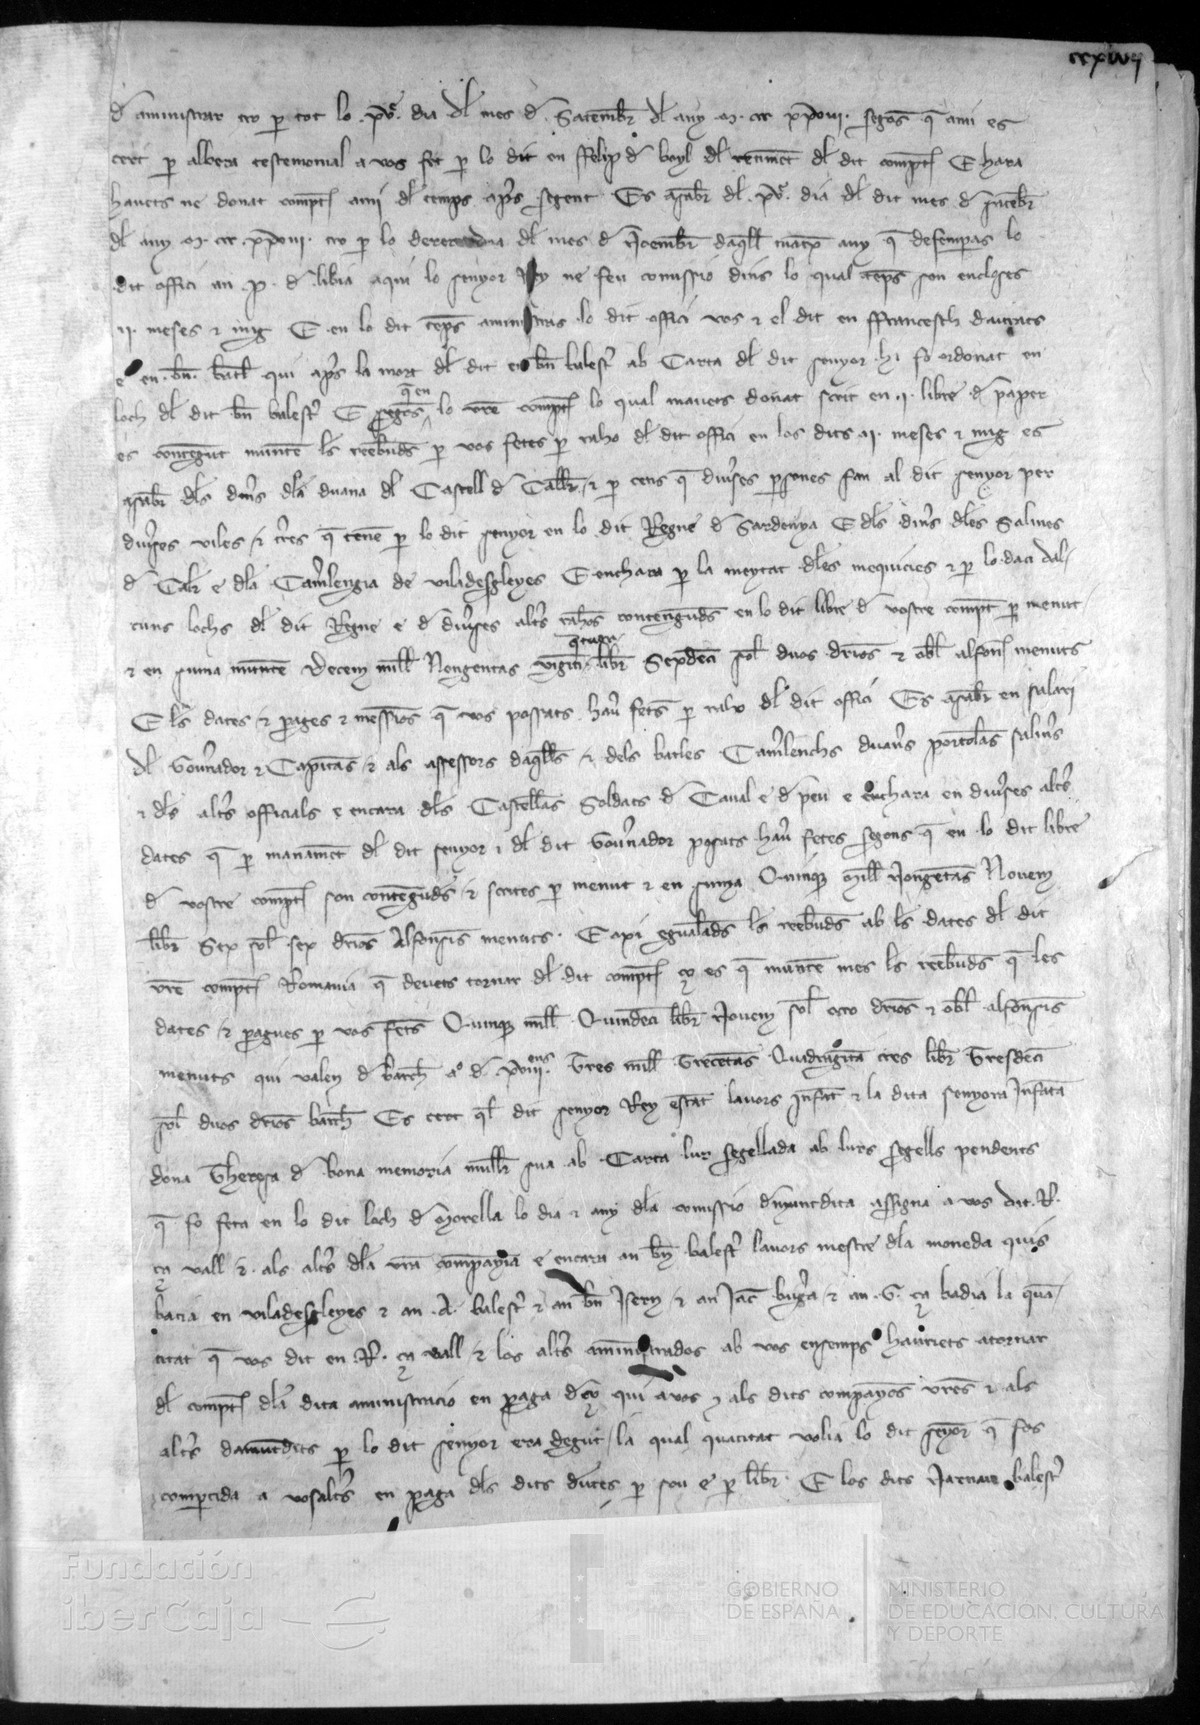 ccxlvij
d aministrar tro p tot lo .pȓ. dia dl mes d Setembr dl any .M. ccc xxvii. segos q ami es
cert p albera testemonial a vos fet p lo dit en ffelip d boyl dl reniment dl dit compt E hara
havets ne donat compt ami dl temps aprs segent Es asabr dl .pȓ. dia dl dit mes d setebr
dl any M. ccc. xxvii. tro p lo derer dia dl mes d Noembr daqll mateix any q desemperas lo
dit offici an .P. d libia aqui lo senyor Rey ne feu comissio dins lo qual temps son encloses
.ii. meses & mig E en lo dit temps aministras lo dit offici vos & el dit en ffrancesch
e en .bn. batl qui aprs la mort dl dit en bn balestr ab Carta dl dit senyor hi fo ordonat en
loch dl dit bn balestr E segos q en lo vre compt lo qual mavets donat scrit en .ii. libre d paper
es contengut munten ls reebuds p vos fetes p raho dl dit offici en los dits .ii. meses & mig es
asabr dls dnrs dla duana dl Castell d Callr & p cens q diuses psones fan al dit senyor per
diuses viles & trres q tenen p lo dit senyor en lo dit Regne d Sardenya E dls dinrs dles Salines
d Callr e dla Camlengia de viladesgleyes E enchara p la meytat dles mequicies & p lo daci dal-
cuns lochs dl dit Regne e d diuses altrs rahos contenguds en lo dit libre d vostre compt p menut
& en suma munten Decem mill Nongentas viginti quatuor libr Septdeci sol duos drios & obl alfons menuts
E ls dates & pages & messios q vos posats hau fets p raho dl dit offici Es asabr en salari
dl Gounador & Capitas & als assessors daqlls & dels batles Camlenchs duans portolas salins
& dls altrs officials e encara dls Castellas Soldats d Caval e d peu e enchara en diuses altrs
dates q p manament dl dit senyor & dl dit Gounador posats hau fetes segons q en lo dit libre
d vostre compt son contenguds & scrites p menut & en suma Quinqz mill Nongetas Novem
libr Sex sol sex drios Alfonsis menuts. E axi egualads ls reebuds ab ls dates dl dit
vre compt Romania q devets tornar dl dit compt ço es q munten mes ls reebuds q les
dates & pagues p vos fets Quinqz mill Quindeci libr Novem sol octo drios & obl alfonsis
menuts qui valen d barch a d Tres mill Trecetas Quadraginta tres libr Tresdeci
sol duos drios barch Es cert ql dit senyor Rey estat lavors Infat & la dita senyora Infata
dona Theresa d bona memoria mullr sua ab Carta lur segellada ab lurs segells pendents
q fo feta en lo dit loch d Morella lo dia & any dla comissio dmuntdita assigna a vos dit .R.
ça vall & als altrs dla vra companyia e encara an bn balestr lavors mestre dla moneda quis
batia en viladesgleyes & an .A. balestr & an bn Isern & an Jac & an .G. ça badia la qua-
titat q vos dit en .R. ça vall & los altrs aministrados ab vos ensemps haurets atornar
dl compt dla dita aministracio en paga dço qui a vos & als dits companyos vres & als
altrs damuntdits p lo dit senyor era degut, la qual quatitat volia lo dit senyor q fos
compartida a vosaltrs en paga dls dits dutes p sou e p libr. E los dits Narnau balestr
Fundación
iberCaja
GOBIERNO
DE ESPAÑA
MINISTERIO
DE EDUCACIÓN, CULTURA
Y DEPORTE